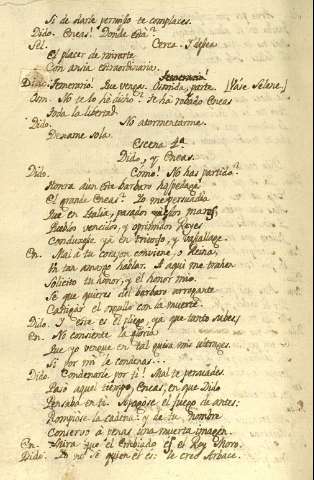 Si de darle permiso te complaces.
Dido. Eneas! Donde està?
Sel. Cerca. I desea
El placer de mirarte
Con ansia extraordinaria.
Temerario!
Dido. Temerario! Que venga. parte. [Vase Selene.]
Osm. No te lo he dicho? Te ha robado Eneas
Toda la libertad.
Dido. No atormentarme.
Dexame sola.
Escena 4ª
Dido, y Eneas.
Dido. Como! No has partido?
Honra aun este barbaro hospedage
El grande Eneas? Yo me persuadia
Que en Italia, pasados ya los mares,
Pueblos vencidos, y oprimidos Reyes
Conducias ya en triunfo, y vasallage.
En. Mal a tu corazon conviene, o Reina,
Un tan amargo hablar. A aqui me trahen
Solicito tu honor, y el honor mio.
Sé que quieres del barbaro arrogante
Castigar el orgullo con la muerte.
Dido. I ese es el pliego, ya que tanto sabes,
En. No consiente la gloria
Que yo vengue en tal guisa mis ultrages.
Si por mi le condenas...
Dido. Condenarle por ti! Mal te persuades
Pasò aquel tiempo, Eneas, en que Dido
Pensaba en ti. Apagòse el fuego de antes:
Rompiòse la cadena: y de tu nombre
Conservo a penas una muerta imagen.
En. Mira que el Embiado es el Rey Moro.
Dido. Yo no sé quien él es: le creo Arbace.